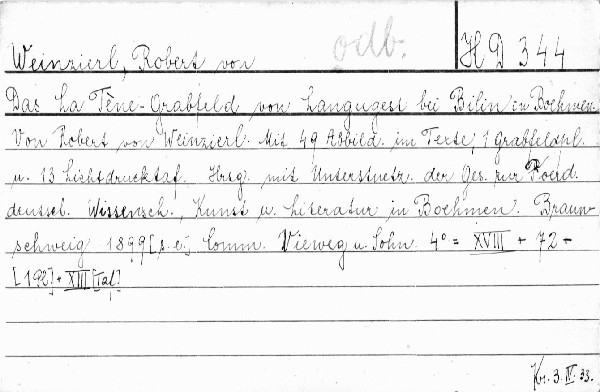 Weinzierl, Robert von odb. HD 344
Das La Tène-Grabfeld von Langugest bei Bilin in Boehmen.
Von Robert von Weinzierl. Mit 49 Abbild. im Texte, 1 Grabfeldpl.
u. 13 Lichtdrucktaf. Hrsg. mit Unterstuetz. der Ges. zur Foerd.
deutsch. Wissensch., Kunst u. Literatur in Boehmen. Braun-
schweig 1899 [s.e.] Comm. Vieweg u. Sohn. 4° = XVIII + 72 +
[192] + XIII [Taf.]
Kr. 3. IV. 33.